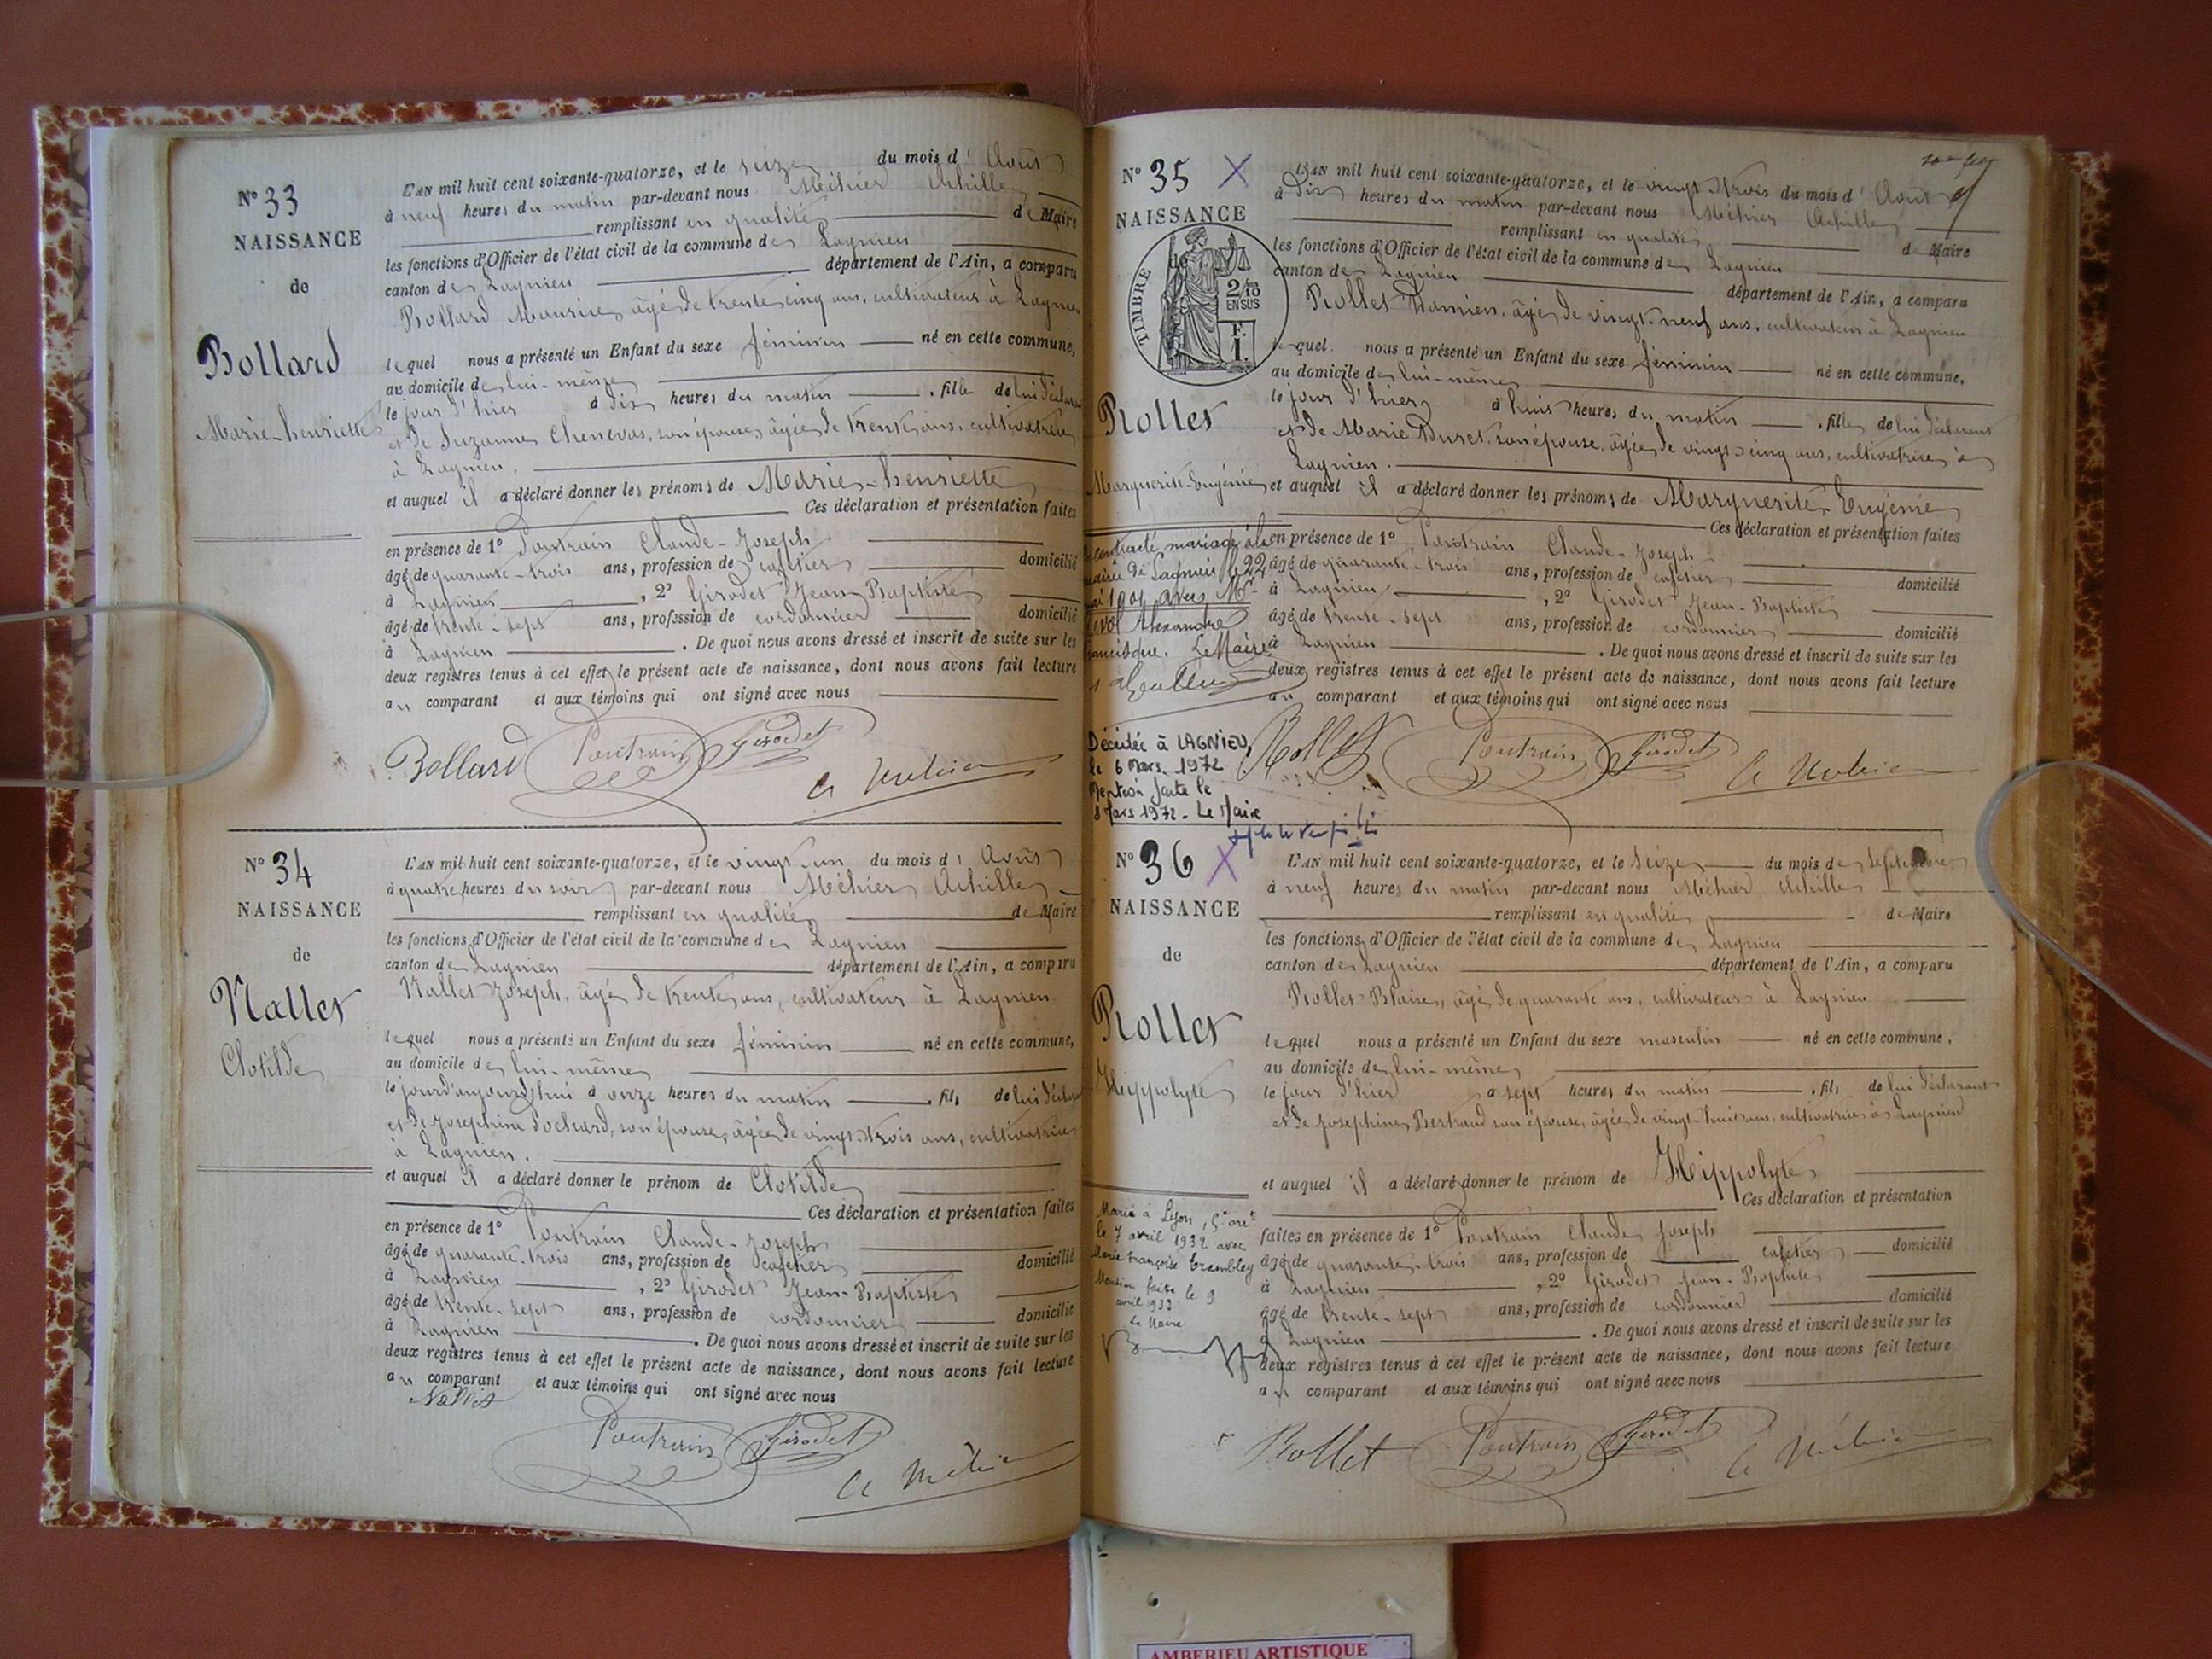 N° 33
NAISSANCE
de
Bollard
Marie-henriette
L'AN mil huit cent soixante-quatorze, et le seize du mois d' Août
à neuf heures du matin par-devant nous Méhier Achille
remplissant en qualité de Maire
les fonctions d'Officier de l'état civil de la commune de Lagnieu
canton de Lagnieu département de l'Ain, a comparu
Bollard Maurice, âgé de trente cinq ans, cultivateur à Lagnieu
lequel nous a présenté un Enfant du sexe féminin né en cette commune,
au domicile de lui-même
le jour d'hier à dix heures du matin , fille de lui déclarant
et de Suzanne Chenevas, son épouse, âgée de trente ans, cultivatrice
à Lagnieu.
et auquel il a déclaré donner les prénoms de Marie-henriette
Ces déclaration et présentation faites
en présence de 1° Poutrain Claude-Joseph
âgé de quarante-trois ans, profession de cafetier domicilié
à Lagnieu , 2° Girodet Jean-Baptiste
âgé de trente-sept ans, profession de cordonnier domicilié
à Lagnieu . De quoi nous avons dressé et inscrit de suite sur les
deux registres tenus à cet effet le présent acte de naissance, dont nous avons fait lecture
au comparant et aux témoins qui ont signé avec nous
Bollard Poutrain Girodet A Méhier
N° 34
NAISSANCE
de
Nallet
Clotilde
L'AN mil huit cent soixante-quatorze, et le vingt-un du mois d' Août
à quatre heures du soir par-devant nous Méhier Achille
remplissant en qualité de Maire
les fonctions d'Officier de l'état civil de la commune de Lagnieu
canton de Lagnieu département de l'Ain, a comparu
Nallet Joseph, âgé de trente ans, cultivateur à Lagnieu
lequel nous a présenté un Enfant du sexe féminin né en cette commune,
au domicile de lui-même
le jour d'aujourd'hui à onze heures du matin , fils de lui déclarant
et de Josephine Pochard, son épouse, âgée de vingt-trois ans, cultivatrice
à Lagnieu.
et auquel il a déclaré donner le prénom de Clotilde
Ces déclaration et présentation faites
en présence de 1° Poutrain Claude-Joseph
âgé de quarante-trois ans, profession de cafetier domicilié
à Lagnieu , 2° Girodet Jean-Baptiste
âgé de trente-sept ans, profession de cordonnier domicilié
à Lagnieu . De quoi nous avons dressé et inscrit de suite sur les
deux registres tenus à cet effet le présent acte de naissance, dont nous avons fait lecture
au comparant et aux témoins qui ont signé avec nous
Nallet
Poutrain Girodet A Méhier
N° 35 X
NAISSANCE
de
TIMBRE
2/10
EN SUS
F.
1.
Rollet
Marguerite-Eugénie
L'AN mil huit cent soixante-quatorze, et le vingt-trois du mois d' Août
à dix heures du matin par-devant nous Méhier Achille
remplissant en qualité de Maire
les fonctions d'Officier de l'état civil de la commune de Lagnieu
canton de Lagnieu département de l'Ain, a comparu
Rollet Damien, âgé de vingt-neuf ans, cultivateur à Lagnieu
lequel nous a présenté un Enfant du sexe féminin né en cette commune,
au domicile de lui-même
le jour d'hier à huit heures du matin , fille de lui déclarant
et de Marie Duret, son épouse, âgée de vingt-cinq ans, cultivatrice à
Lagnieu.
et auquel il a déclaré donner les prénoms de Marguerite Eugénie
Ces déclaration et présentation faites
en présence de 1° Poutrain Claude-Joseph
âgé de quarante-trois ans, profession de cafetier domicilié
à Lagnieu , 2° Girodet Jean-Baptiste
âgé de trente-sept ans, profession de cordonnier domicilié
à Lagnieu . De quoi nous avons dressé et inscrit de suite sur les
deux registres tenus à cet effet le présent acte de naissance, dont nous avons fait lecture
au comparant et aux témoins qui ont signé avec nous
contracté mariage
de Lagnieu le 22
1901 avec Mr
Alexandre
Le Maire
Décédée à LAGNIEU
le 6 Mars 1972
Mention faite le
8 Mars 1972 - Le Maire
Rollet Poutrain Girodet A Méhier
N° 36 X
NAISSANCE
de
Rollet
Hippolyte
L'AN mil huit cent soixante-quatorze, et le seize du mois de Septembre
à neuf heures du matin par-devant nous Méhier Achille
remplissant en qualité de Maire
les fonctions d'Officier de l'état civil de la commune de Lagnieu
canton de Lagnieu département de l'Ain, a comparu
Rollet Blaise, âgé de quarante ans, cultivateur à Lagnieu
lequel nous a présenté un Enfant du sexe masculin né en cette commune,
au domicile de lui-même
le jour d'hier à sept heures du matin , fils de lui déclarant
et de Josephine Bertrand son épouse, âgée de vingt-huit ans, cultivatrice à Lagnieu
et auquel il a déclaré donner le prénom de Hippolyte
Ces déclaration et présentation
faites en présence de 1° Poutrain Claude Joseph
âgé de quarante-trois ans, profession de cafetier domicilié
à Lagnieu , 2° Girodet Jean-Baptiste
âgé de trente-sept ans, profession de cordonnier domicilié
à Lagnieu . De quoi nous avons dressé et inscrit de suite sur les
deux registres tenus à cet effet le présent acte de naissance, dont nous avons fait lecture
au comparant et aux témoins qui ont signé avec nous
Marié à Lyon, 5e arrt
le 7 avril 1932 avec
Marie Françoise Trembley
Mention faite le 9
avril 1932
Le Maire
Rollet Poutrain Girodet A Méhier
AMBERIEU ARTISTIQUE